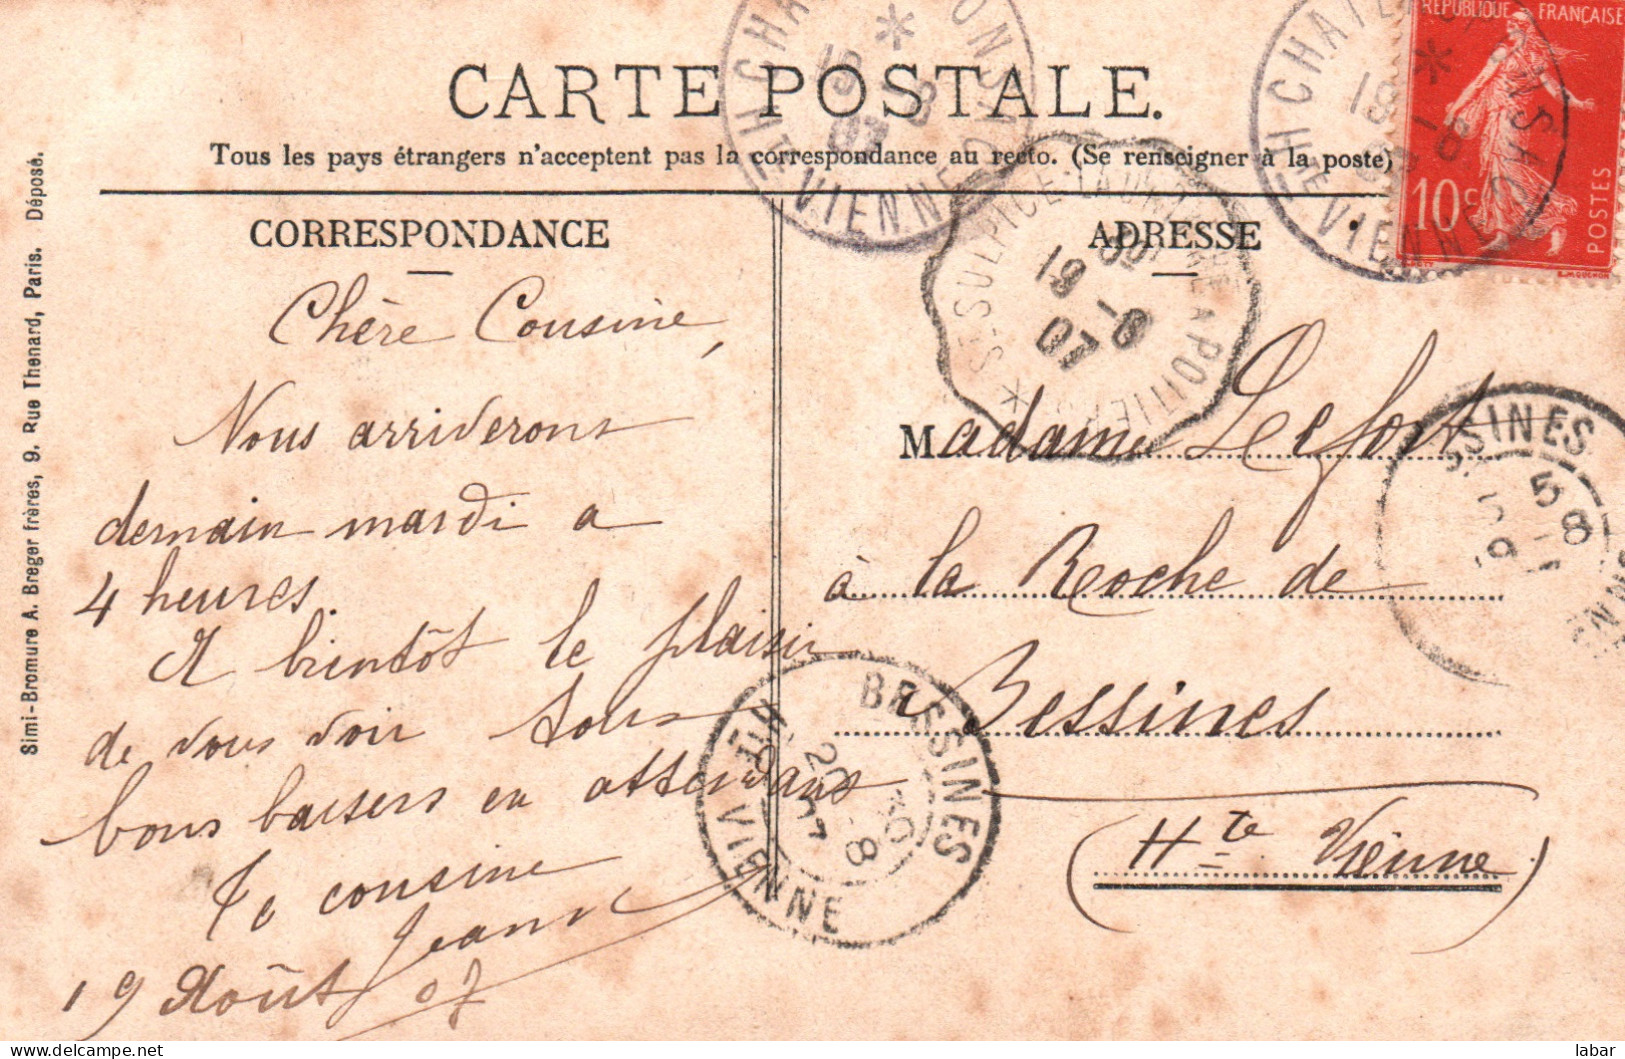 CARTE POSTALE.
Tous les pays étrangers n'acceptent pas la correspondance au recto. (Se renseigner à la poste)
CORRESPONDANCE
Chère Cousine,
Nous arriverons
demain mardi a
4 heures.
A bientôt le plaisir
de vous voir tous
bons baisers en attendant
Ta cousine
Jeanne
19 Août 07
ADRESSE
Madame Lefort
à la Roche de
Bessines
(Hte Vienne)
Simi-Bromure A. Breger frères, 9. Rue Thenard, Paris. Déposé.
REPUBLIQUE FRANÇAISE
10c
POSTES
HTE VIENNE
19 -8
07
ST-SULPICE-LAURIERE A POITIERS
19 -8
07
CHATEAUPONSAC
HTE VIENNE
19 -8
BESSINES
HTE VIENNE
20 -8
07
SSINES
58
labar